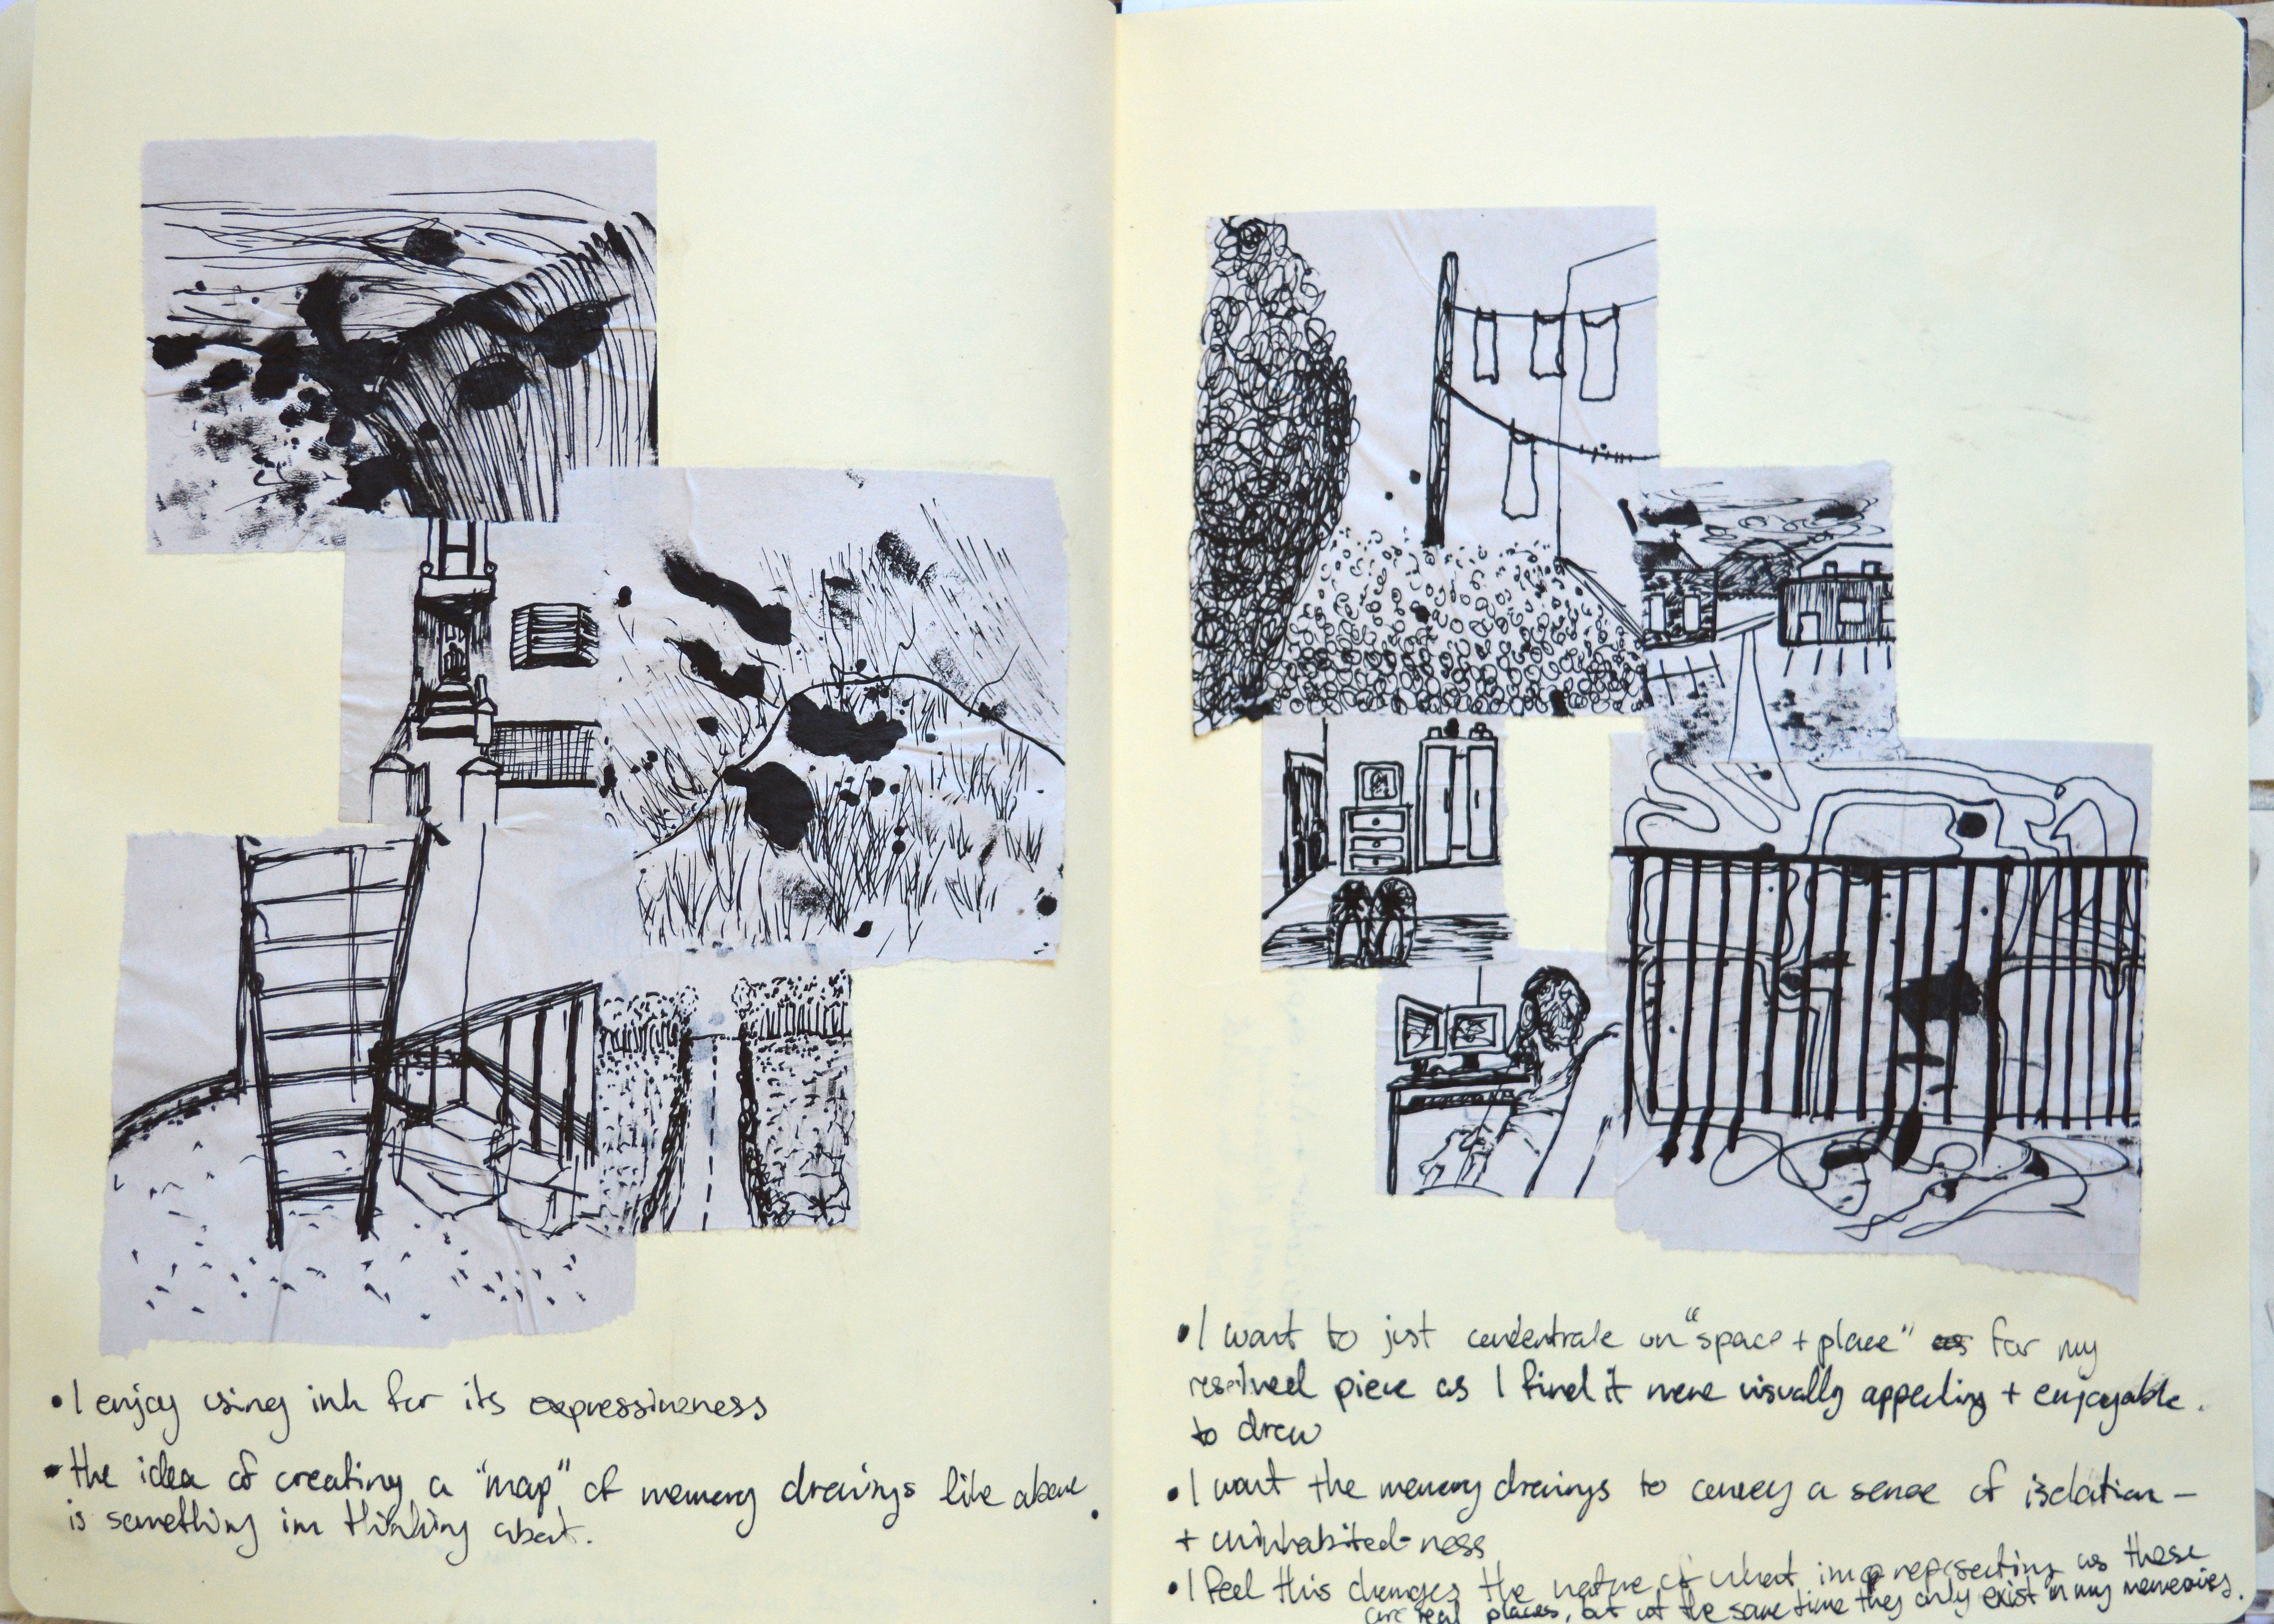 • I enjoy using ink for its expressiveness
• the idea of creating a "map" of memory drawings like above
is something im thinking about.
• I want to just concentrate on "space + place" as for my
resolved piece as I find it more visually appealing + enjoyable.
to draw
• I want the memory drawings to convey a sense of isolation –
+ uninhabited-ness
• I feel this changes the nature of what im representing as these
are real places, but at the same time they only exist in my memories.